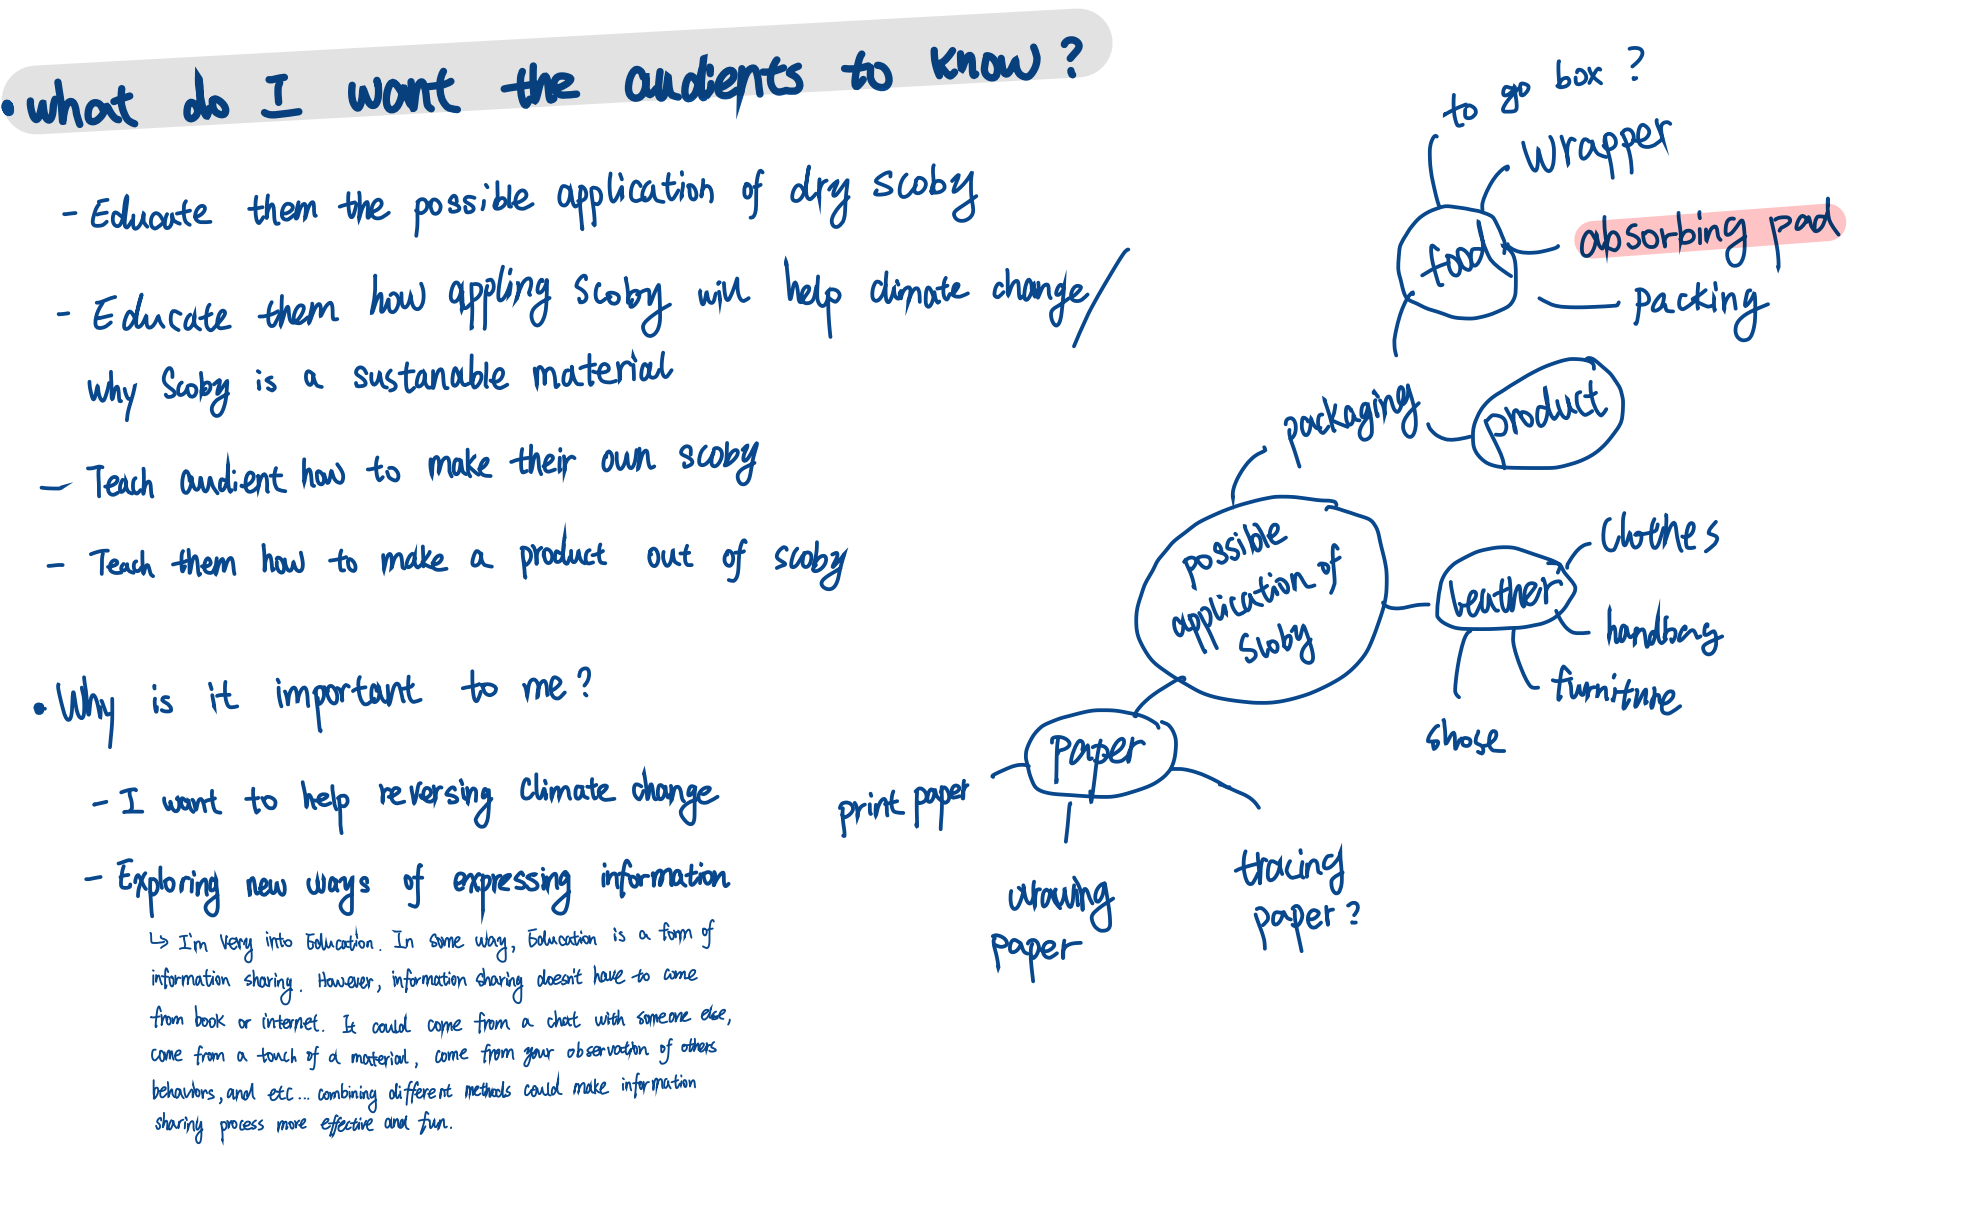 • what do I want the audients to know?
- Educate them the possible application of dry scoby
- Educate them how appling scoby will help climate change/
why Scoby is a sustanable material
- Teach audient how to make their own scoby
- Teach them how to make a product out of scoby
• Why is it important to me?
- I want to help reversing climate change
- Exploring new ways of expressing information
↳ I'm very into Education. In some way, Education is a form of
information sharing. However, information sharing doesn't have to come
from book or internet. It could come from a chat with someone else,
come from a touch of a material, come from your observation of others
behaviors, and etc... combining different methods could make information
sharing process more effective and fun.
to go box?
Wrapper
food
absorbing pad
packing
packaging
product
possible
application of
scoby
Leather
Clothes
handbag
furniture
shose
paper
print paper
drawing
paper
tracing
paper?